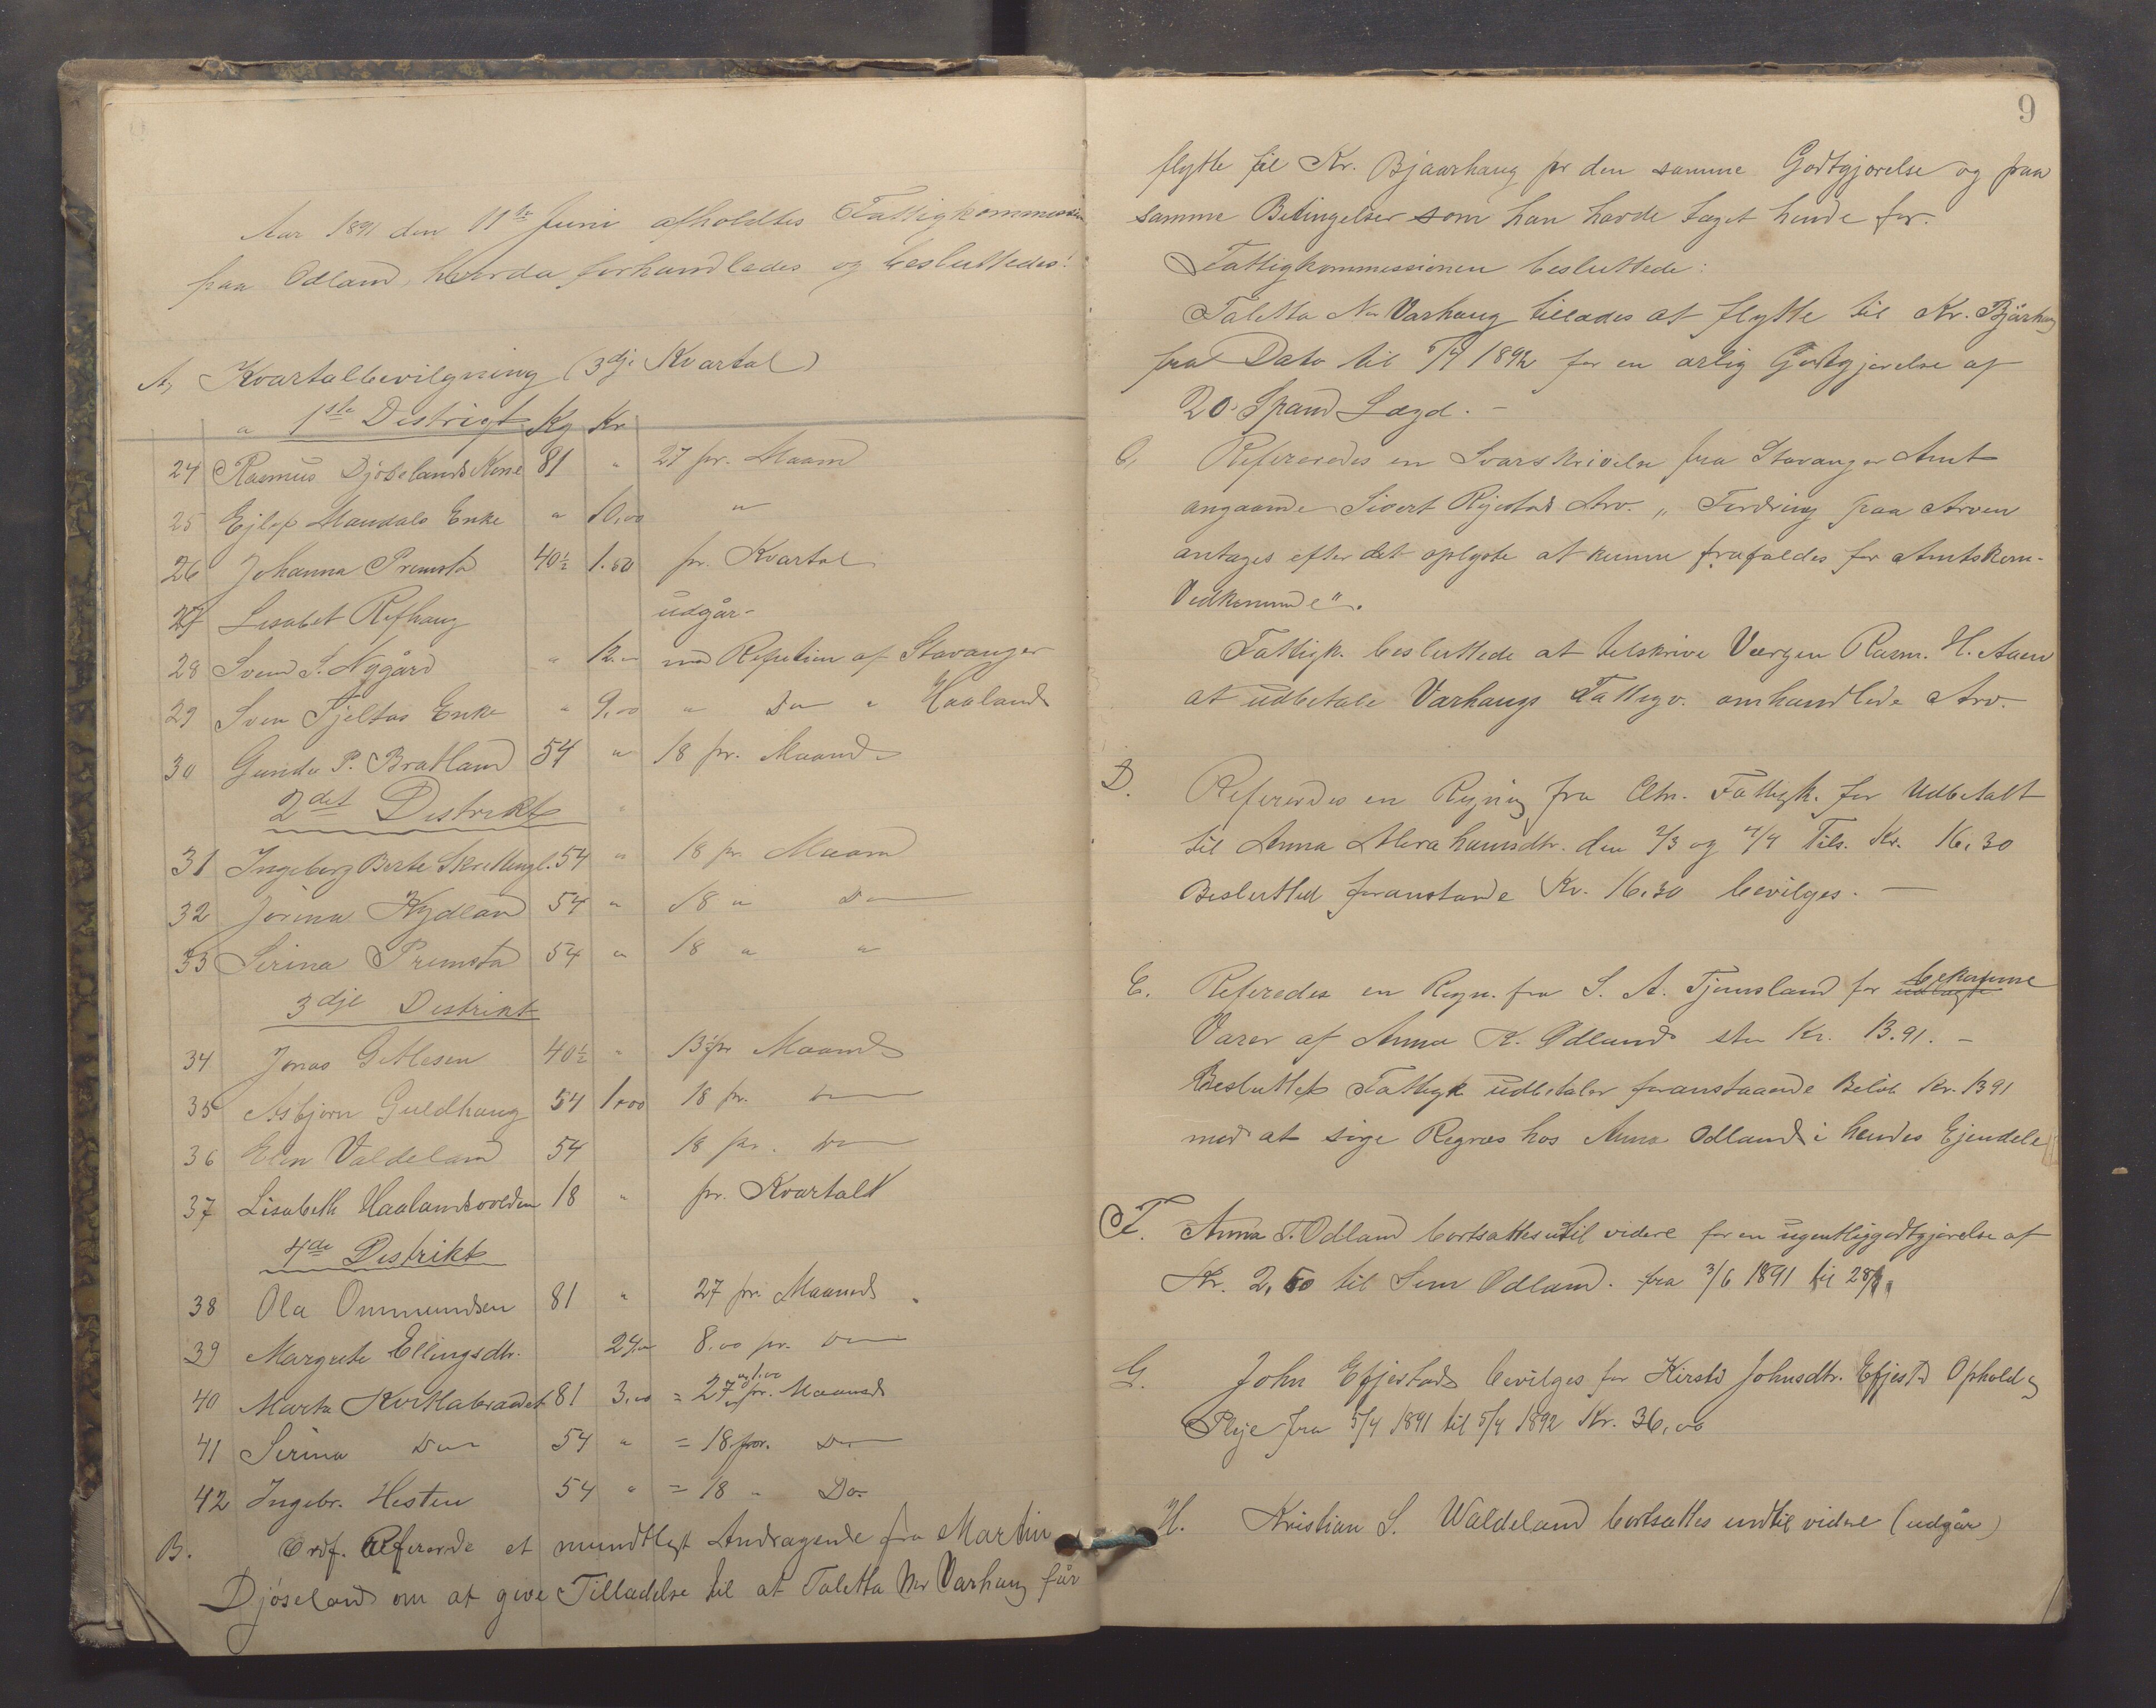 Aar 1891 den 11te Juni afholdtes Fattigkommission
paa Odland, hvorda forhandledes og besluttedes:
A, Kvartalbevilgning (3dje Kvartal)
a 1ste Distrigt Kg Kr
24 Rasmus Djøselands Kone 81 " 27 pr. Maand
25 Ejlef Mandals Enke " 10,00 "
26 Johanna Premsta 40½ 1.50 pr. Kvartal
27 Lisabet Refhaug udgår-
28 Svend S. Nygård " 12.00 med Refution af Stavanger
29 Sven Fjeltas Enke " 9,00 " Do " Haaland
30 Gunder P. Bratland 54 " 18 pr. Maand
2det Distrikt
31 Ingeborg Berte Skrettingl. 54 " 18 pr. Maand
32 Jorina Kydland 54 " 18 " Do
33 Serina Premsta 54 " 18 " "
3dje Distrikt
34 Jonas Getlesen 40½ " 13½ pr Maand
35 Asbjørn Guldhaug 54 1,00 18 pr. Do
36 Elen Valdeland 54 18 pr. Do
37 Lisabeth Haalandsvolden 18 " pr. Kvartalt
4de Distrikt
38 Ola Ommundsen 81 " 27 pr. Maaned
39 Margrete Ellingsdtr. 24,00 8,00 pr. Do
40 Marta Kvitlabraadet 81 3,00 = 27 og 1.00 pr. Maaned
41 Serina Do 54 " = 18 pr. Do
42 Ingebr. Hesten 54 " = 18 " Do
B. Ordf. Refererde et mundtligt Andragende fra Martin
Djøseland om at give Tilladelse til at Taletta Nr Varhaug får
9
flytte til Kr. Bjaarhaug for den samme Godtgjorelse og paa
samme Betingelser som han havde taget hende for.
Fattigkommissionen besluttede:
Taletta N. Varhaug tillades at flytte til Kr. Bjårhaug
fra Dato til 5/4 1892 for en årlig Godtgjørelse af
20 Spand Lægd. -
C, Refereredes en Svarskrivelse fra Stavanger Amt
angaaende Sivert Rijestad Arv. „ Fordring paa Arven
antages efter det oplyste at kunne frafaldes for Amtskom-
Vedkommende".
Fattigk. besluttede at tilskrive Værgen Rasm. H. Aaen
at udbetale Varhaugs Fattigv. omhandlede Arv.
D. Refereredes en Regning fra Fattigk. for Udbetalt
til Anna Abrahamsdtr. den 2/3 og 4/4 Tils. Kr. 16,30
Beslutted foranstaade Kr. 16.30 bevilges. —
E. Referedes en Regn. fra S. A. Tjemsland for udlagte bekomne
Varer af Anna K. Odland stor Kr. 13.91. -
Besluttet Fattigk udbetaler foranstaaende Beløb Kr. 13 91
med at søge Regres hos Anna Odland i hendes Ejendele
F. Anna T. Odland bortsattes indtil videre for en ugentlig godtgjørelse af
Kr. 2,50 til Sem Odland. fra 3/6 1891 til 28/6
G. John Efjestad bevilges for Kirsti Johnsdtr. Efjestd Ophold og
Pleje fra 5/4 1891 til 5/4 1892 Kr. 36,00
H. Kristian S. Waldeland bortsattes indtil videre (udgår)